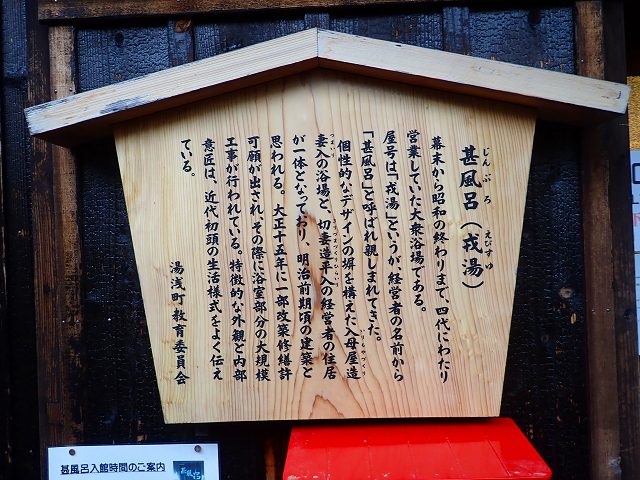 甚風呂（戎湯）
じんぶろ　えびすゆ
幕末から昭和の終わりまで、四代にわたり
営業していた大衆浴場である。
屋号は「戎湯」というが経営者の名前から
「甚風呂」と呼ばれ親しまれてきた。
個性的なデザインの塀を構えた入母屋造
いりもやづくり
妻入の浴場と、切妻造平入の経営者の住居
つまいり
が一体となっており、明治前期頃の建築と
思われる。大正十五年に一部改築修繕許
可願が出され、その際に浴室部分の大規模
工事が行われている。特徴的な外観と内部
意匠は、近代初頭の生活様式をよく伝え
ている。
湯浅町教育委員会
甚風呂入館時間のご案内